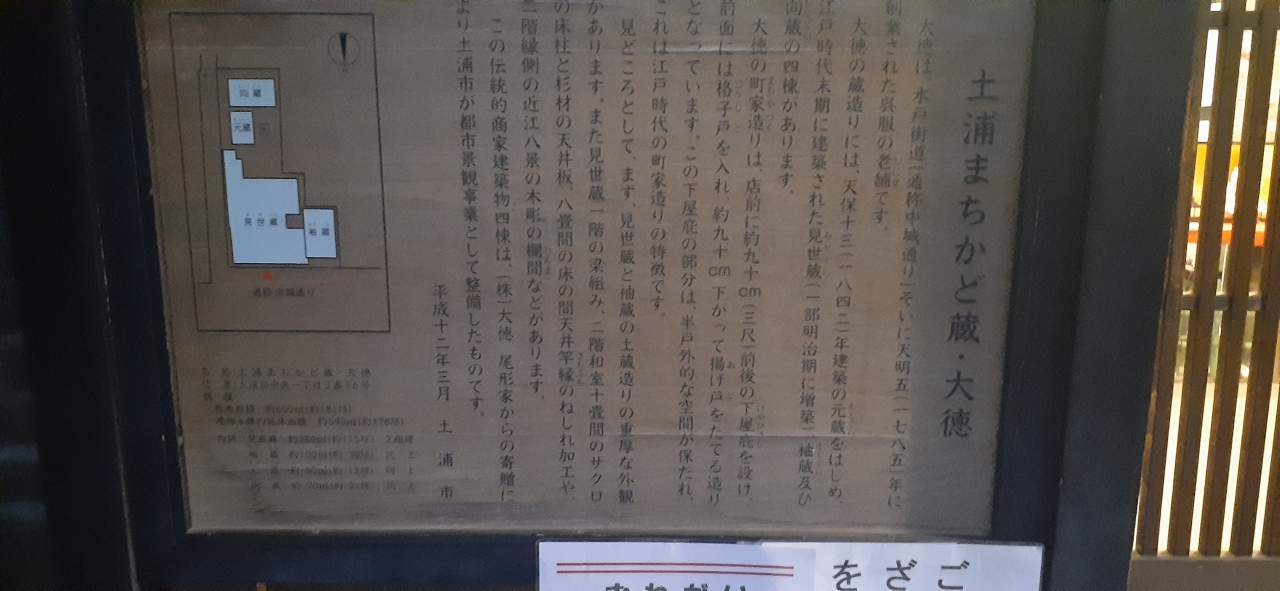 土浦まちかど蔵・大徳
大徳は、水戸街道(通称中城通り)ぞいに天明五(一七八五)年に
創業された呉服の老舗です。
大徳の蔵造りには、天保十三(一八四二)年建築の元蔵をはじめ、
江戸時代末期に建築された見世蔵(一部明治期に増築)、袖蔵及び
向蔵の四棟があります。
大徳の町家造りは、店前に約九十cm(三尺)前後の下屋庇を設け、
前面には格子戸を入れ、約九十cm下がって揚げ戸をたてる造り
となっています。この下屋庇の部分は、半戸外的な空間が保たれ、
これは江戸時代の町家造りの特徴です。
見どころとして、まず、見世蔵と袖蔵の土蔵造りの重厚な外観
があります。また見世蔵一階の梁組み、二階和室十畳間のザクロ
の床柱と杉材の天井板、八畳間の床の間天井竿縁のねじれ加工や、
二階縁側の近江八景の木彫の欄間などがあります。
この伝統的商家建築物四棟は、(株)大徳 尾形家からの寄贈に
より土浦市が都市景観事業として整備したものです。
平成十二年三月 土浦市
向蔵
元蔵
見世蔵
袖蔵
通称 中城通り
名称 土浦まちかど蔵・大徳
ござ
を